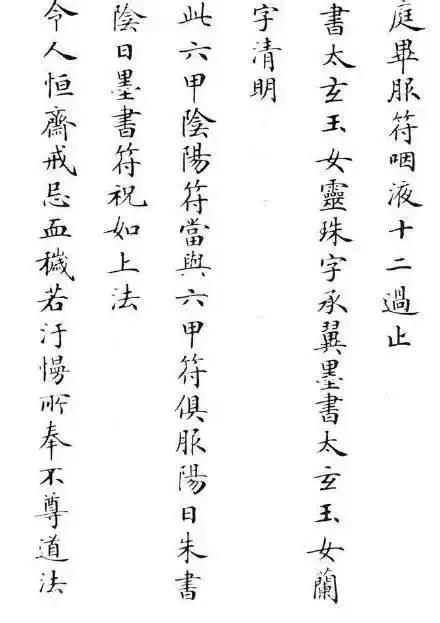 庭畢服符咽液十二過止
書太玄玉女靈珠字承翼墨書太玄玉女蘭
字清明
此六甲陰陽符當與六甲符俱服陽日朱書
陰日墨書符祝如上法
令人恒齋戒忌血穢若汙慢所奉不尊道法